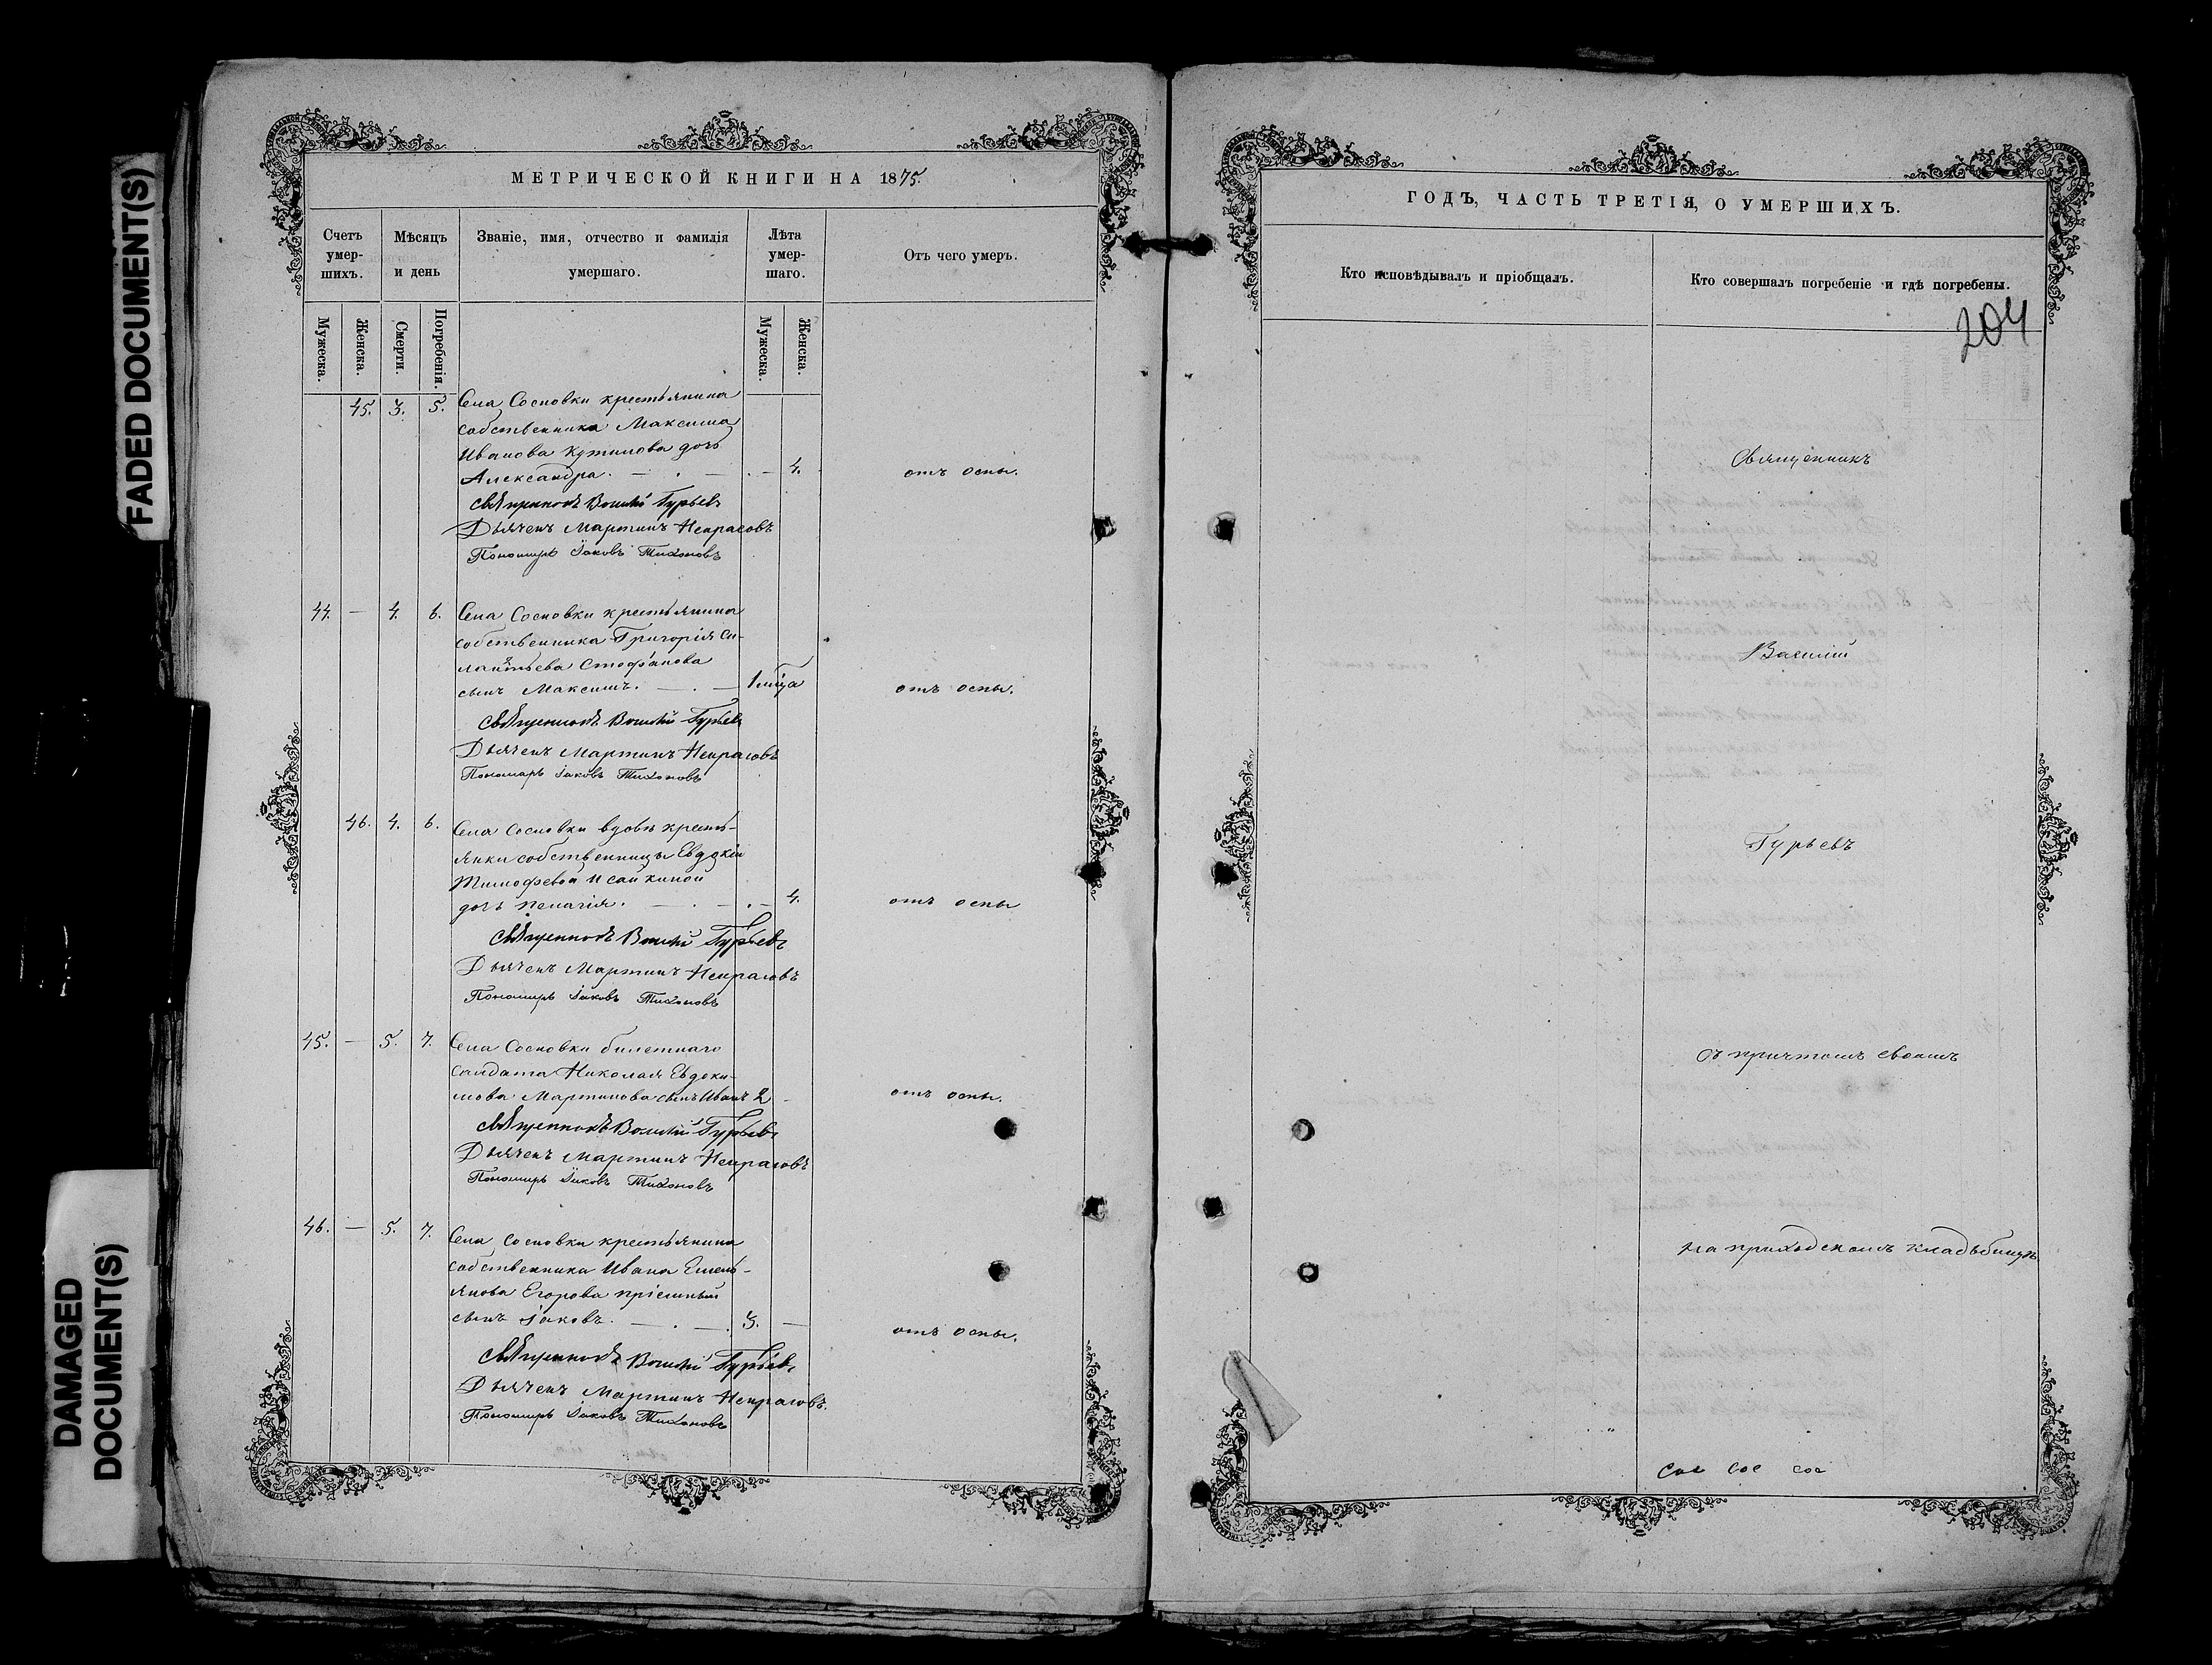 FADED DOCUMENT(S)
DAMAGED
DOCUMENT(S)
МЕТРИЧЕСКОЙ КНИГИ НА 1875.
Счетъ
умер-
шихъ.
Мѣсяцъ
и день
Званіе, имя, отчество и фамилія
умершаго.
Лѣта
умер-
шаго.
Отъ чего умеръ.
Мужеска.
Женска.
Смерти.
Погребенія.
Мужеска.
Женска.
45. 3. 5. Села Сосновки крестьянина
собственника Максима
Иванова дочь
Александра. 4. отъ оспы.
Священникъ Василій Гурьевъ
Дьячекъ Мартинъ Некрасовъ
Пономарь Іаковъ Тихоновъ
44. — 4. 6. Села Сосновки крестьянина
собственника Григорія Си-
лантьева Стефанова
сынъ Максимъ. 1 мца отъ оспы.
Священникъ Василій Гурьевъ
Дьячекъ Мартинъ Некрасовъ
Пономарь Іаковъ Тихоновъ
46. 4. 6. Села Сосновки вдовы кресть-
янки собственницы Евдокіи
Тимофевой Исайкиной
дочь Пелагія. 4. отъ оспы
Священникъ Василій Гурьевъ
Дьячекъ Мартинъ Некрасовъ
Пономарь Іаковъ Тихоновъ
45. — 5. 7. Села Сосновки билетнаго
солдата Николая Евдоки-
мова Мартинова сынъ Иванъ 2 - отъ оспы.
Священникъ Василій Гурьевъ
Дьячекъ Мартинъ Некрасовъ
Пономарь Іаковъ Тихоновъ
46. — 5. 7. Села Сосновки крестьянина
собственника Ивана Емель-
янова Егорова пріемный
сынъ Іаковъ. 3. — отъ оспы.
Священникъ Василій Гурьевъ
Дьячекъ Мартинъ Некрасовъ.
Пономарь Іаковъ Тихоновъ
ГОДЪ, ЧАСТЬ ТРЕТІЯ, О УМЕРШИХЪ.
Кто исповѣдывалъ и пріобщалъ.
Кто совершалъ погребеніе и гдѣ погребены.
204
Священникъ
Василій
Гурьевъ
съ причтомъ своимъ
на приходскомъ кладьбищѣ